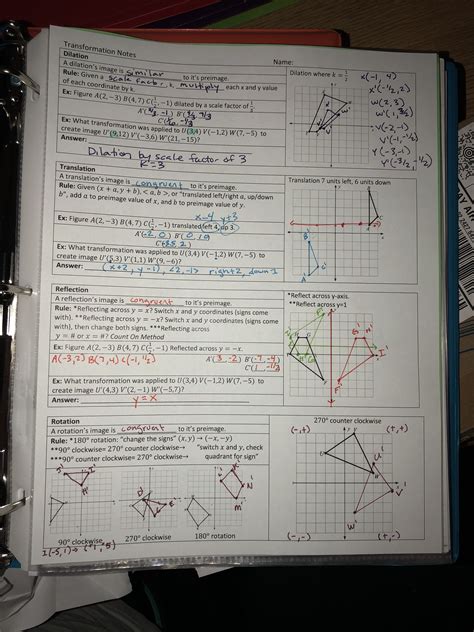 Transformation Notes
Name:
Dilation
A dilation's image is similar to it's preimage.
Rule: Given a scale factor, k, multiply each x and y value
of each coordinate by k.
Ex: Figure A(2, −3) B(4, 7) C(
, −1) dilated by a scale factor of
Ex: What transformation was applied to U(3,4) V(−1,2) W(7, −5) to
create image U'(9,12) V'(−3,6) W'(21, −15)?
Answer: Dilation by scale factor of 3
K=3
Dilation where k = 1/2
X(-1, 4)
X'(-1/2, 2)
W(2, 3)
W'(1, 3/2)
V(-2, -1)
V'(-1, -1/2)
Y(-3, -1)
Y'(-3/2, -1/2)
Translation
A translation's image is congruent to it's preimage.
Rule: Given (x + a, y + b), < a, b >, or "translated left/right a, up/down
b", add a to preimage value of x, and b to preimage value of y.
x-4 y+3
Ex: Figure A(2, −3) B(4, 7) C(
, −1) translated left 4, up 3.
A'(-2, 0) B'(0, 10)
Ex: What transformation was applied to U(3,4) V(−1,2) W(7, −5) to
create image U'(5,3) V'(1,1) W'(9, −6)?
Answer: (x+2, y-1), <2,-1> right 2, down 1
Translation 7 units left, 6 units down
Reflection
A reflection's image is congruent to it's preimage.
Rule: *Reflecting across y = x? Switch x and y coordinates (signs come
with). **Reflecting across y = −x? Switch x and y coordinates (signs come
with), then change both signs. ***Reflecting across
y = # or x = #? Count On Method
Ex: Figure A(2, −3) B(4, 7) C(
, −1) Reflected across y = −x.
A(-3,2) B(7,4) C(-1, 1/2)
A'(3, -2) B'(-7, -4)
C'(1, -1/2)
Ex: What transformation was applied to U(3,4) V(−1,2) W(7, −5) to
create image U'(4,3) V'(2, −1) W'(−5,7)?
Answer: y = x
*Reflect across y-axis.
**Reflect across y=1
Rotation
A rotation's image is congruent to it's preimage.
Rule: *180° rotation: "change the signs" (x, y) → (−x, −y)
**90° counter clockwise= 270° clockwise→ "switch x and y, check
***90° clockwise= 270° counter clockwise→ quadrant for sign"
90° clockwise
270° clockwise
180° rotation
270° counter clockwise
(-,+)
(+,+)
W'
V'
(-,-)
(+,-)